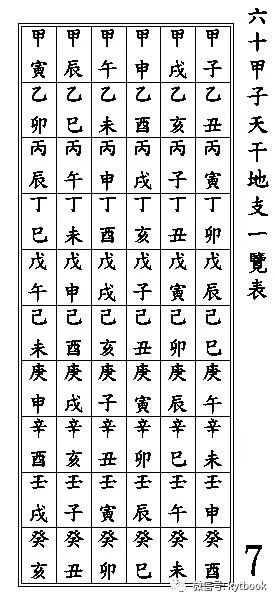 六十甲子天干地支一覽表
7
甲子 乙丑 丙寅 丁卯 戊辰 己巳 庚午 辛未 壬申 癸酉
甲戌 乙亥 丙子 丁丑 戊寅 己卯 庚辰 辛巳 壬午 癸未
甲申 乙酉 丙戌 丁亥 戊子 己丑 庚寅 辛卯 壬辰 癸巳
甲午 乙未 丙申 丁酉 戊戌 己亥 庚子 辛丑 壬寅 癸卯
甲辰 乙巳 丙午 丁未 戊申 己酉 庚戌 辛亥 壬子 癸丑
甲寅 乙卯 丙辰 丁巳 戊午 己未 庚申 辛酉 壬戌 癸亥
微信号: kytbook